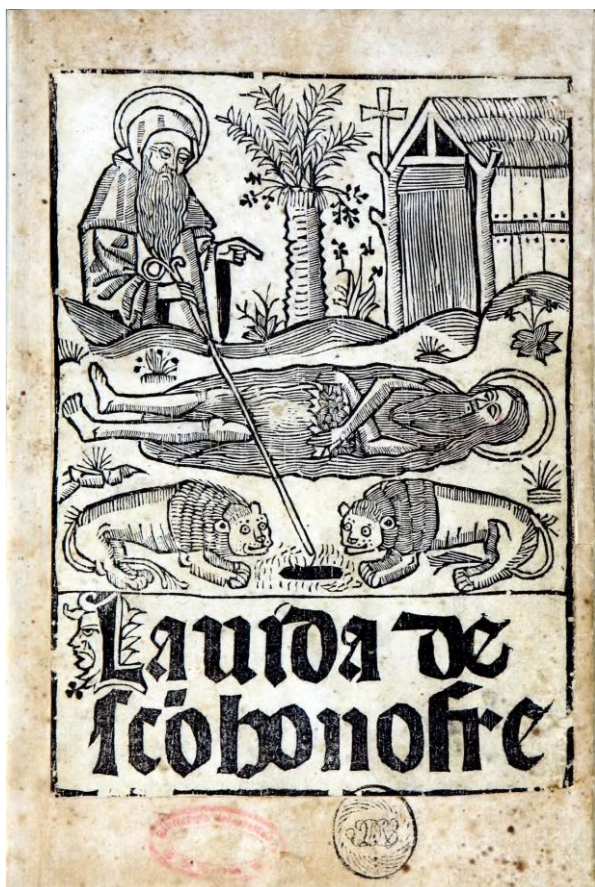 La vida de
scō honofre